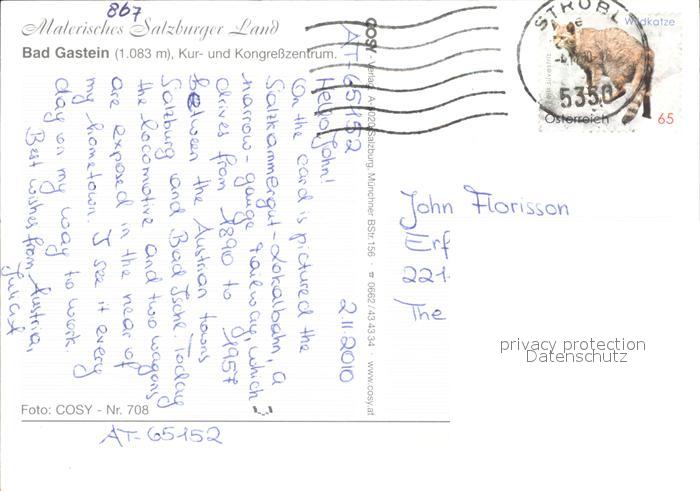 867
Malerisches Salzburger Land
Bad Gastein (1.083 m), Kur- und Kongreßzentrum.
AT-65152
2.11.2010
Hello John!
On the card is pictured the
Salzkammergut-Lokalbahn, a
narrow-gauge railway, which
drives from 1890 to 1957
between the Austrian towns
Salzburg and Bad Ischl. Today
the locomotive and two wagons
are exposed in the near of
my hometown. I see it every
day on my way to work.
Best wishes from Austria,
COSY - Verlag, A-5020 Salzburg, Münchner BStr. 156 · ☎ 0662/43 43 34 · www.cosy.at
Foto: COSY - Nr. 708
AT-65152
STROBL
5350
Wildkatze
Österreich
65
John Florisson
Erf
221
The
privacy protection
Datenschutz